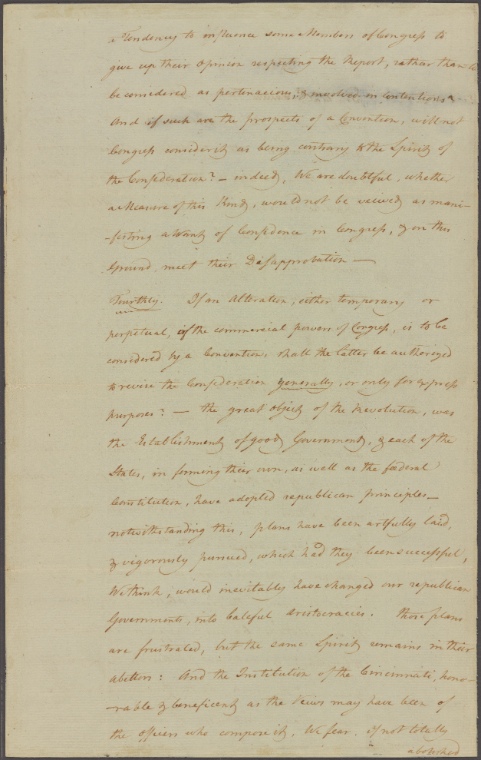 a Tendency to influence some Members of Congress to
give up their opinion respecting the Report, rather than to
be considered as pertenacious, & involved in contentions.
And if such are the prospects of a Convention, will not
Congress consider it as being contrary to the Spirit of
the Confederation? — indeed, We are doubtful, whether
a Measure of this Kind, would not be viewed as mani-
-festing a Want of Confidence in Congress, & on this
Ground, meet their Disapprobation —
Fourthly. If an Alteration, either temporary or
perpetual, of the commercial powers of Congress, is to be
considered by a Convention, shall the latter be authorized
to revise the Confederation generally, or only for express
purposes? — the great object of the revolution, was
the Establishment of good Government, & each of the
States, in forming their own, as well as the fœderal
Constitution, have adopted republican principles —
notwithstanding this, plans have been artfully laid,
& vigorously pursued, which had they been successful,
We think, would inevitably have changed our republican
Governments, into baleful aristocracies. those plans
are frustrated, but the same Spirit remains in their
abettors: And the Institution of the Cincinnati, hono-
-rable & beneficent as the Views may have been of
the officers who compose it, We fear, if not totally
abolished